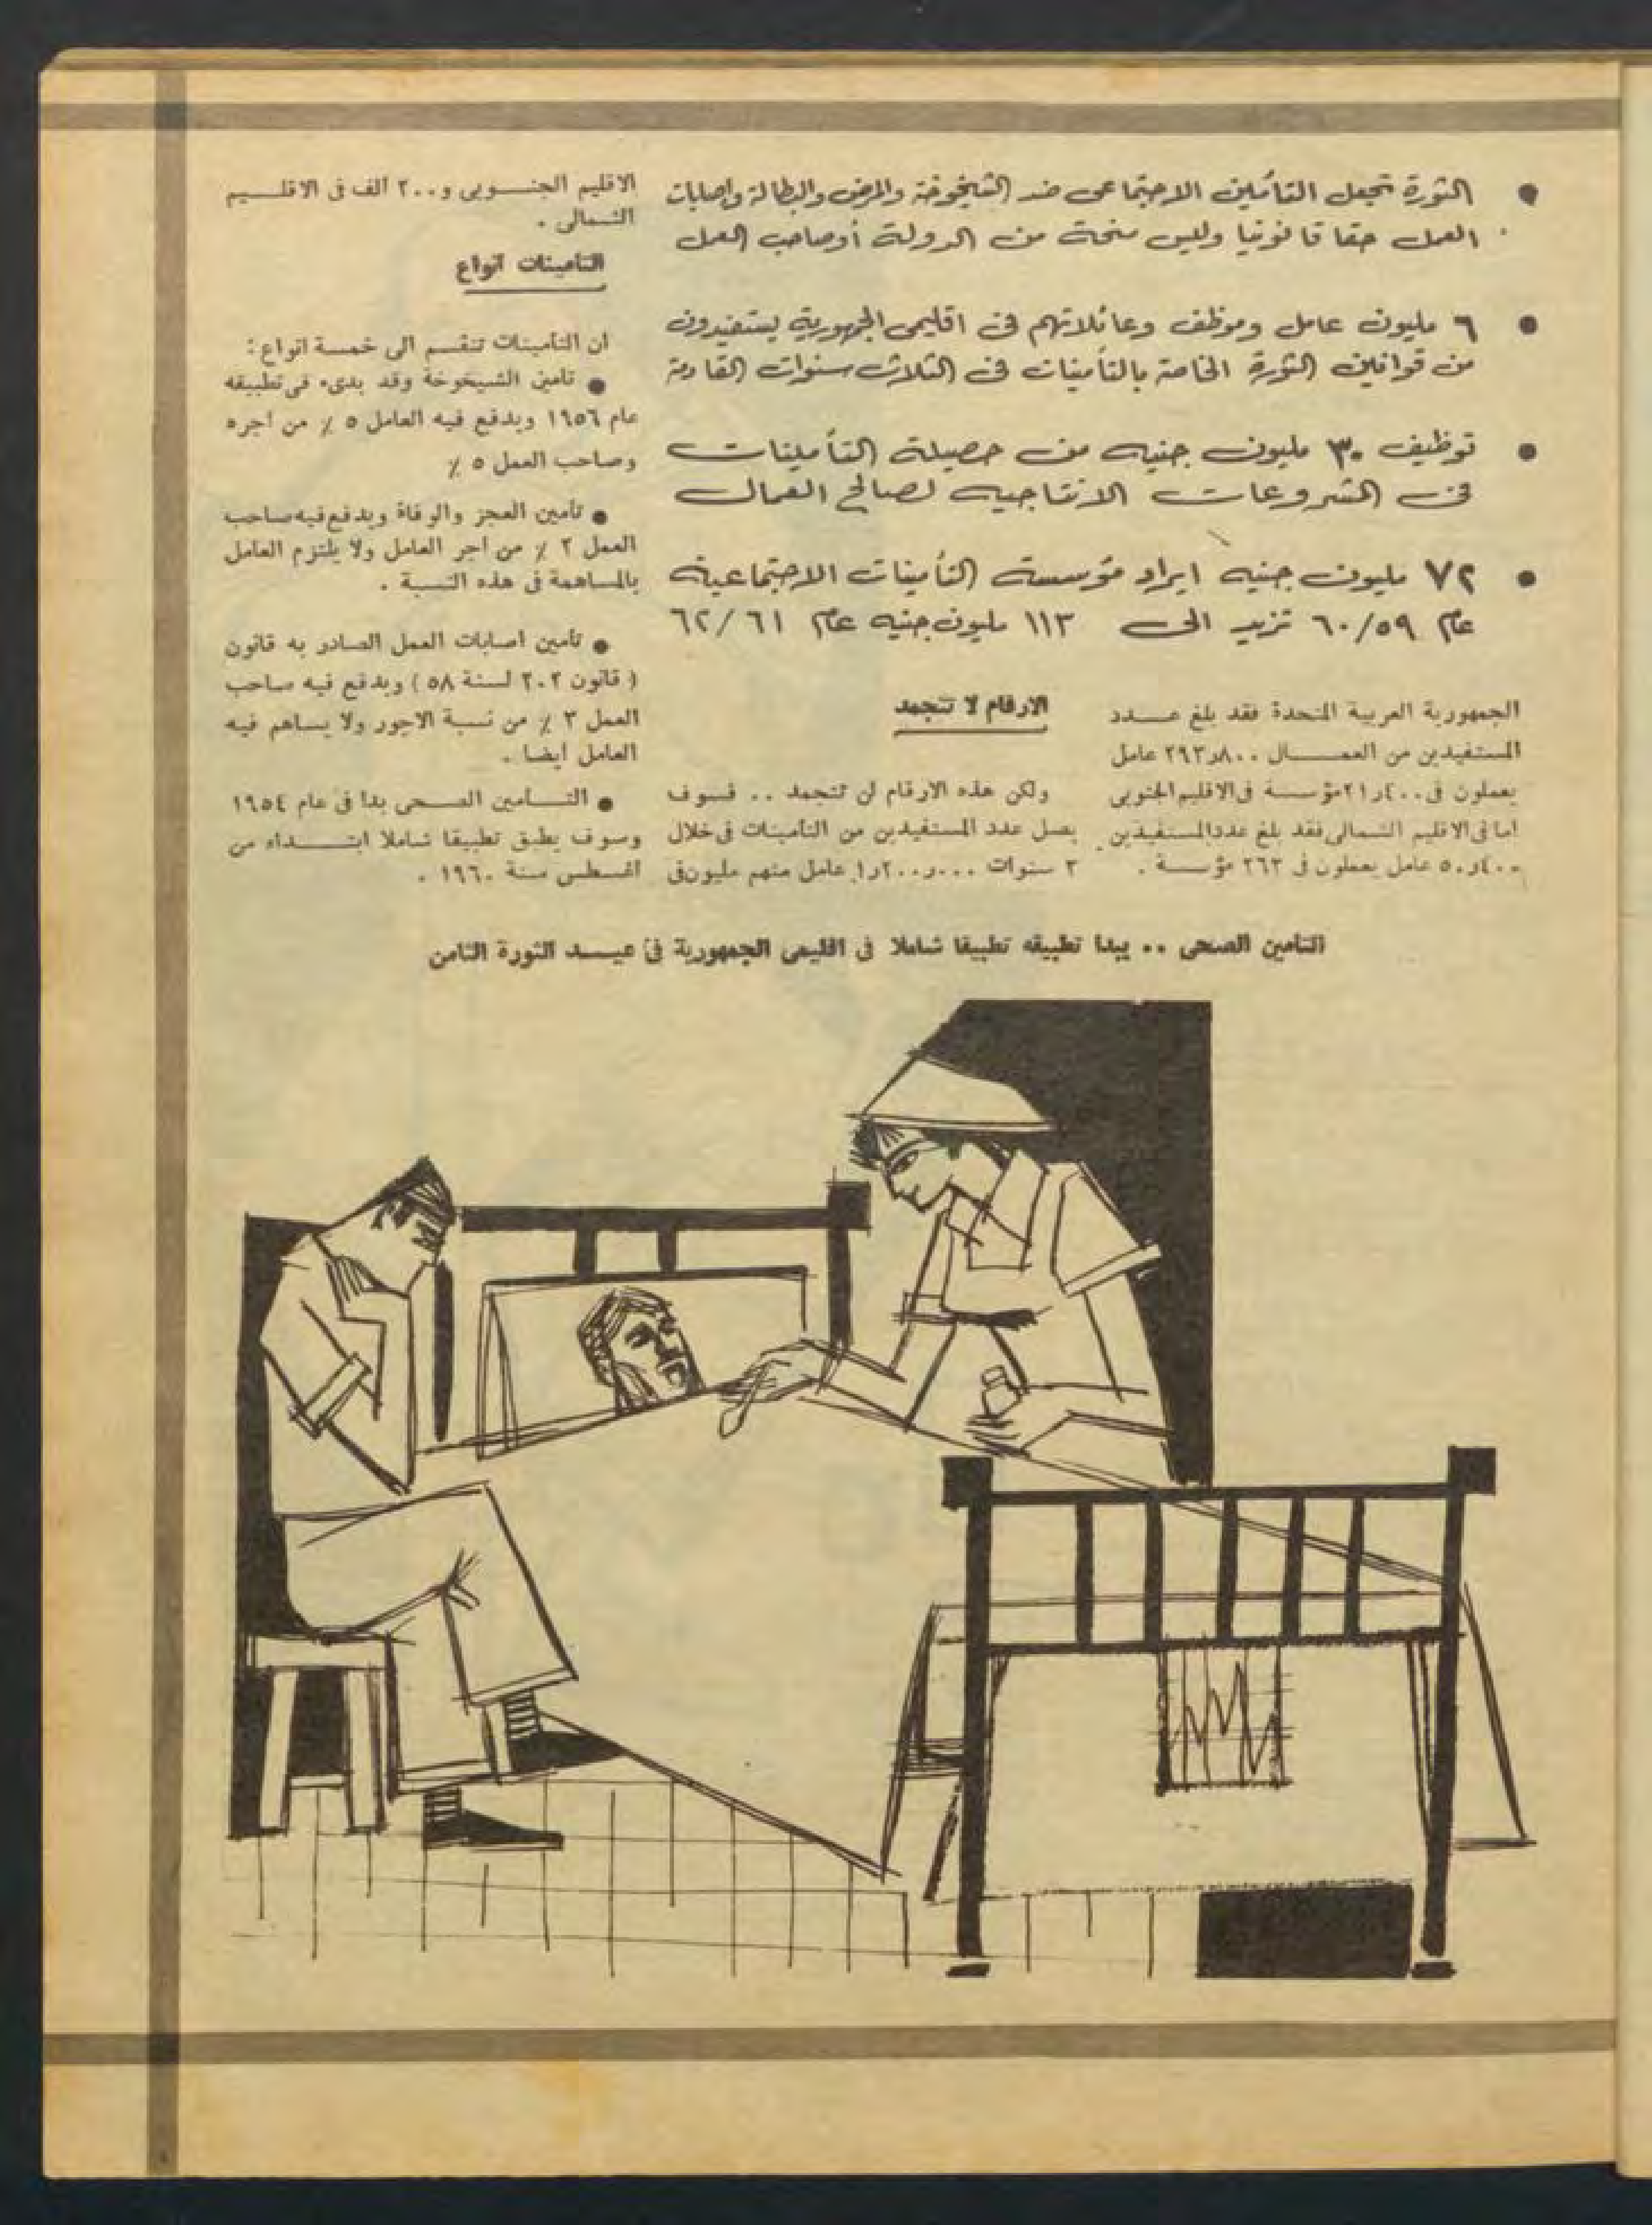 ● الثورة تجعل التأمين الاجتماعى ضد الشيخوخة والمرض والبطالة واصابات
العمل حقا قانونيا وليس منحة من الدولة أو صاحب العمل
● ٦ مليون عامل وموظف وعائلاتهم فى اقليمى الجمهورية يستفيدون
من قوانين الثورة الخاصة بالتأمينات فى الثلاث سنوات القادمة
● توظيف ٣٠ مليون جنيه من حصيلة التأمينات
فى المشروعات الانتاجيه لصالح العمال
● ٧٢ مليون جنيه ايراد مؤسسة التأمينات الاجتماعية
عام ٦٠/٥٩ تزيد الى ١١٣ مليون جنيه عام ٦٢/٦١
الجمهورية العربية المتحدة فقد بلغ عدد
المستفيدين من العمال ٢٩٣٫٨٠٠ عامل
يعملون فى ٢١٫٤٠٠ مؤسسة فى الاقليم الجنوبى
اما فى الاقليم الشمالى فقد بلغ عدد المستفيدين
٥٠٫٤٠٠ عامل يعملون فى ٢٦٣ مؤسسة .
الارقام لا تتجمد
ولكن هذه الارقام لن تتجمد .. فسوف
يصل عدد المستفيدين من التأمينات فى خلال
٣ سنوات ١٫٢٠٠٫٠٠٠ عامل منهم مليون فى
الاقليم الجنوبى و ٢٠٠ ألف فى الاقليم
الشمالى .
التأمينات انواع
ان التأمينات تنقسم الى خمسة انواع :
● تأمين الشيخوخة وقد بدىء فى تطبيقه
عام ١٩٥٦ ويدفع فيه العامل ٥ ٪ من اجره
وصاحب العمل ٥ ٪
● تأمين العجز والوفاة ويدفع فيه صاحب
العمل ٢ ٪ من اجر العامل ولا يلتزم العامل
بالمساهمة فى هذه النسبة .
● تأمين اصابات العمل الصادر به قانون
( قانون ٢٠٢ لسنة ٥٨ ) ويدفع فيه صاحب
العمل ٣ ٪ من نسبة الاجور ولا يساهم فيه
العامل ايضا .
● التأمين الصحى بدا فى عام ١٩٥٤
وسوف يطبق تطبيقا شاملا ابتداء من
اغسطس سنة ١٩٦٠ .
التأمين الصحى .. يبدا تطبيقه تطبيقا شاملا فى اقليمى الجمهورية فى عيد الثورة الثامن